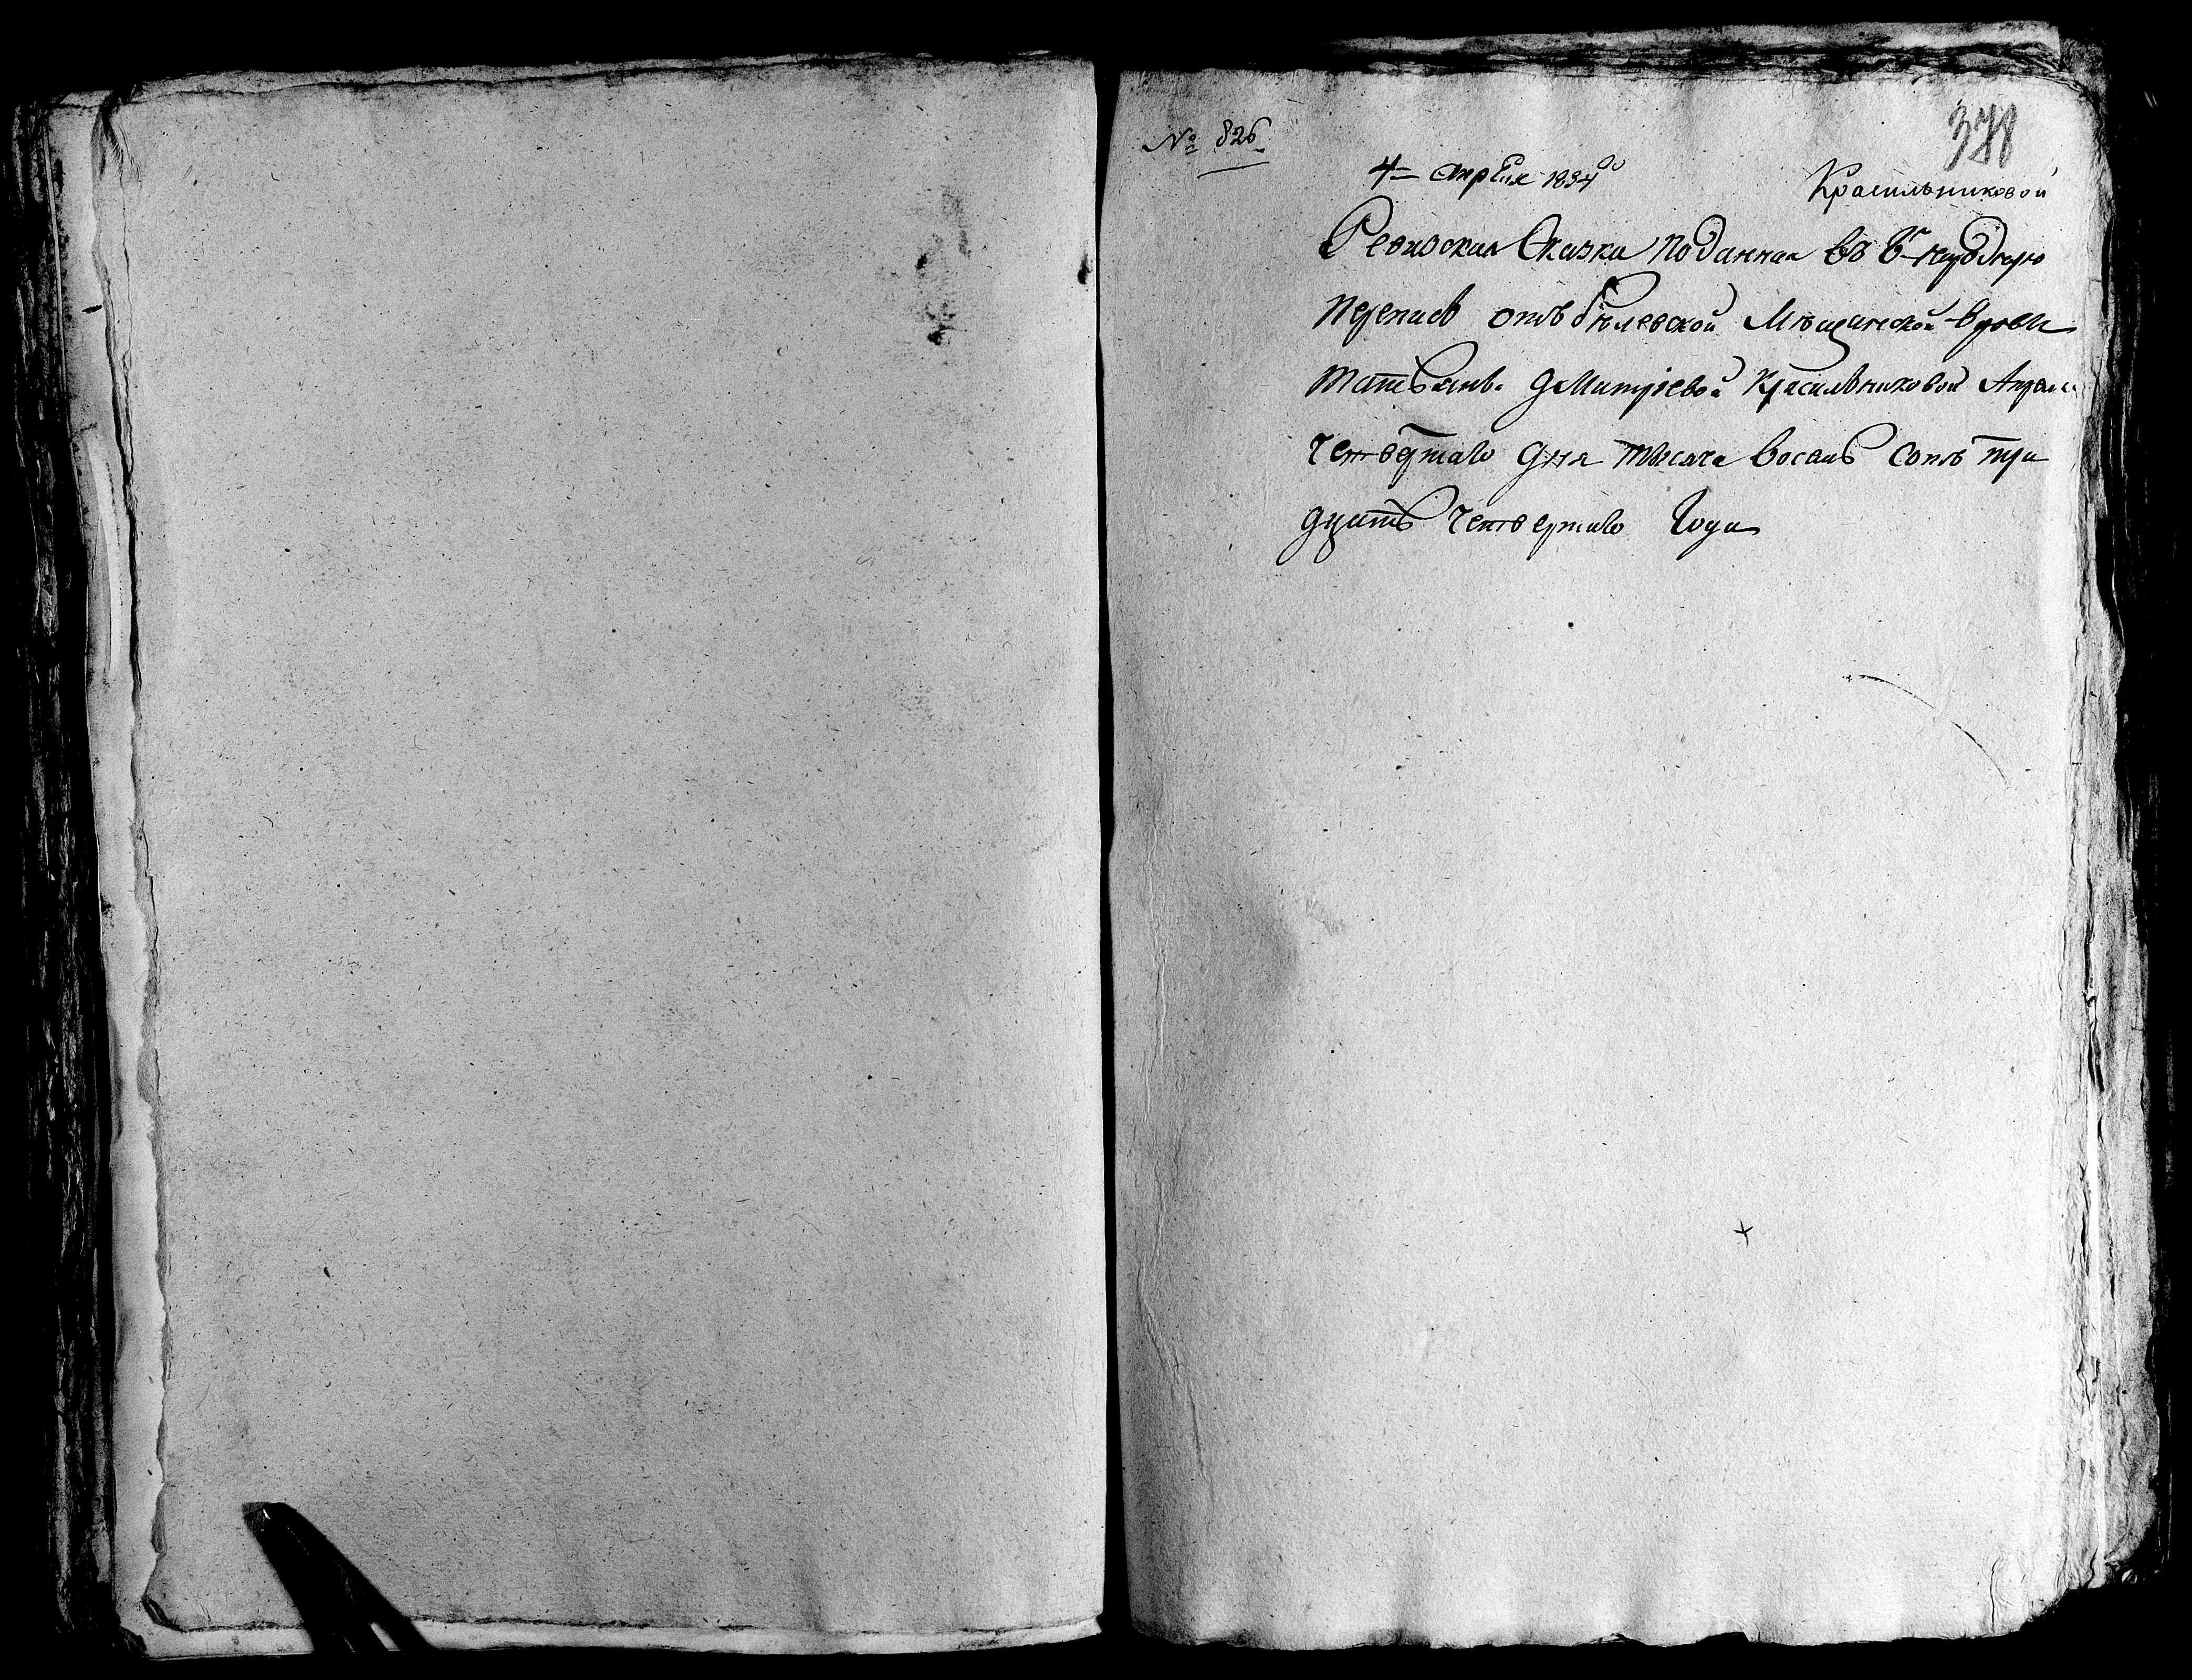 № 826
378
4 апреля 1834
Красильниковой
Ревизская Сказка поданная въ 8ю народную
перепись отъ белевской Мѣщанской вдовы
татьяны дмитріевой Красильниковой Апреля
четвертаго дня тысяча восемь сотъ три
дцать четвертаго Года